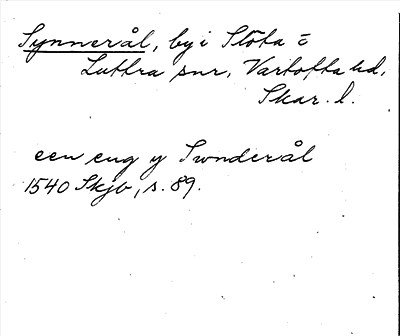 Synnerål, by i Slöta =
Luttra snr, Vartofta hd,
Skar. l.
een eng y Swnderål
1540 Skjb, s. 89.